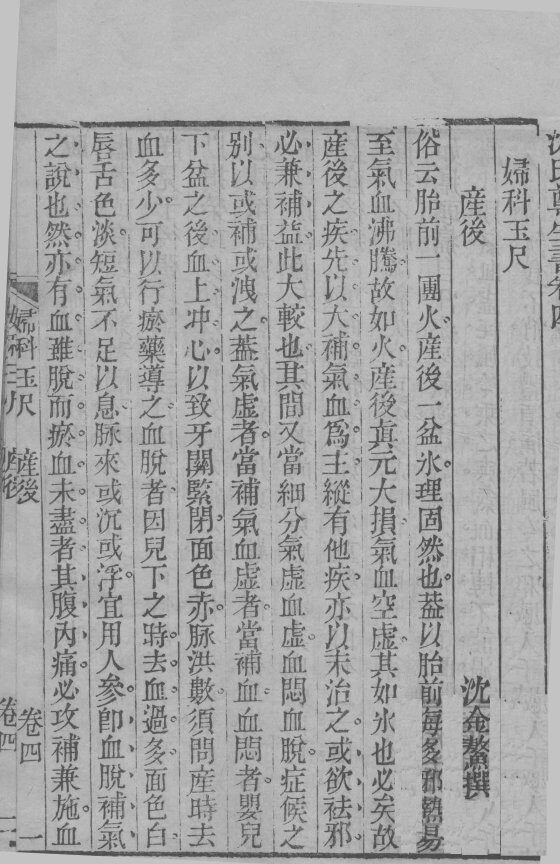 沈氏尊生書卷四
婦科玉尺
沈金鰲撰
産後
俗云胎前一團火産後一盆氷理固然也葢以胎前每多邪熱易
至氣血沸騰故如火産後眞元大損氣血空虚其如氷也必矣故
産後之疾先以大補氣血爲主縱有他疾亦以末治之或欲祛邪
必兼補益此大較也其間又當細分氣虚血虚血悶血脫症候之
别以或補或洩之葢氣虚者當補氣血虚者當補血血悶者嬰兒
下盆之後血上冲心以致牙關緊閉面色赤脉洪數須問産時去
血多少可以行瘀藥導之血脫者因兒下之時去血過多面色白
唇舌色淡短氣不足以息脉來或沉或浮宜用人參卽血脫補氣
之說也然亦有血雖脫而瘀血未盡者其腹內痛必攻補兼施血
婦科玉尺
産後
卷四
一